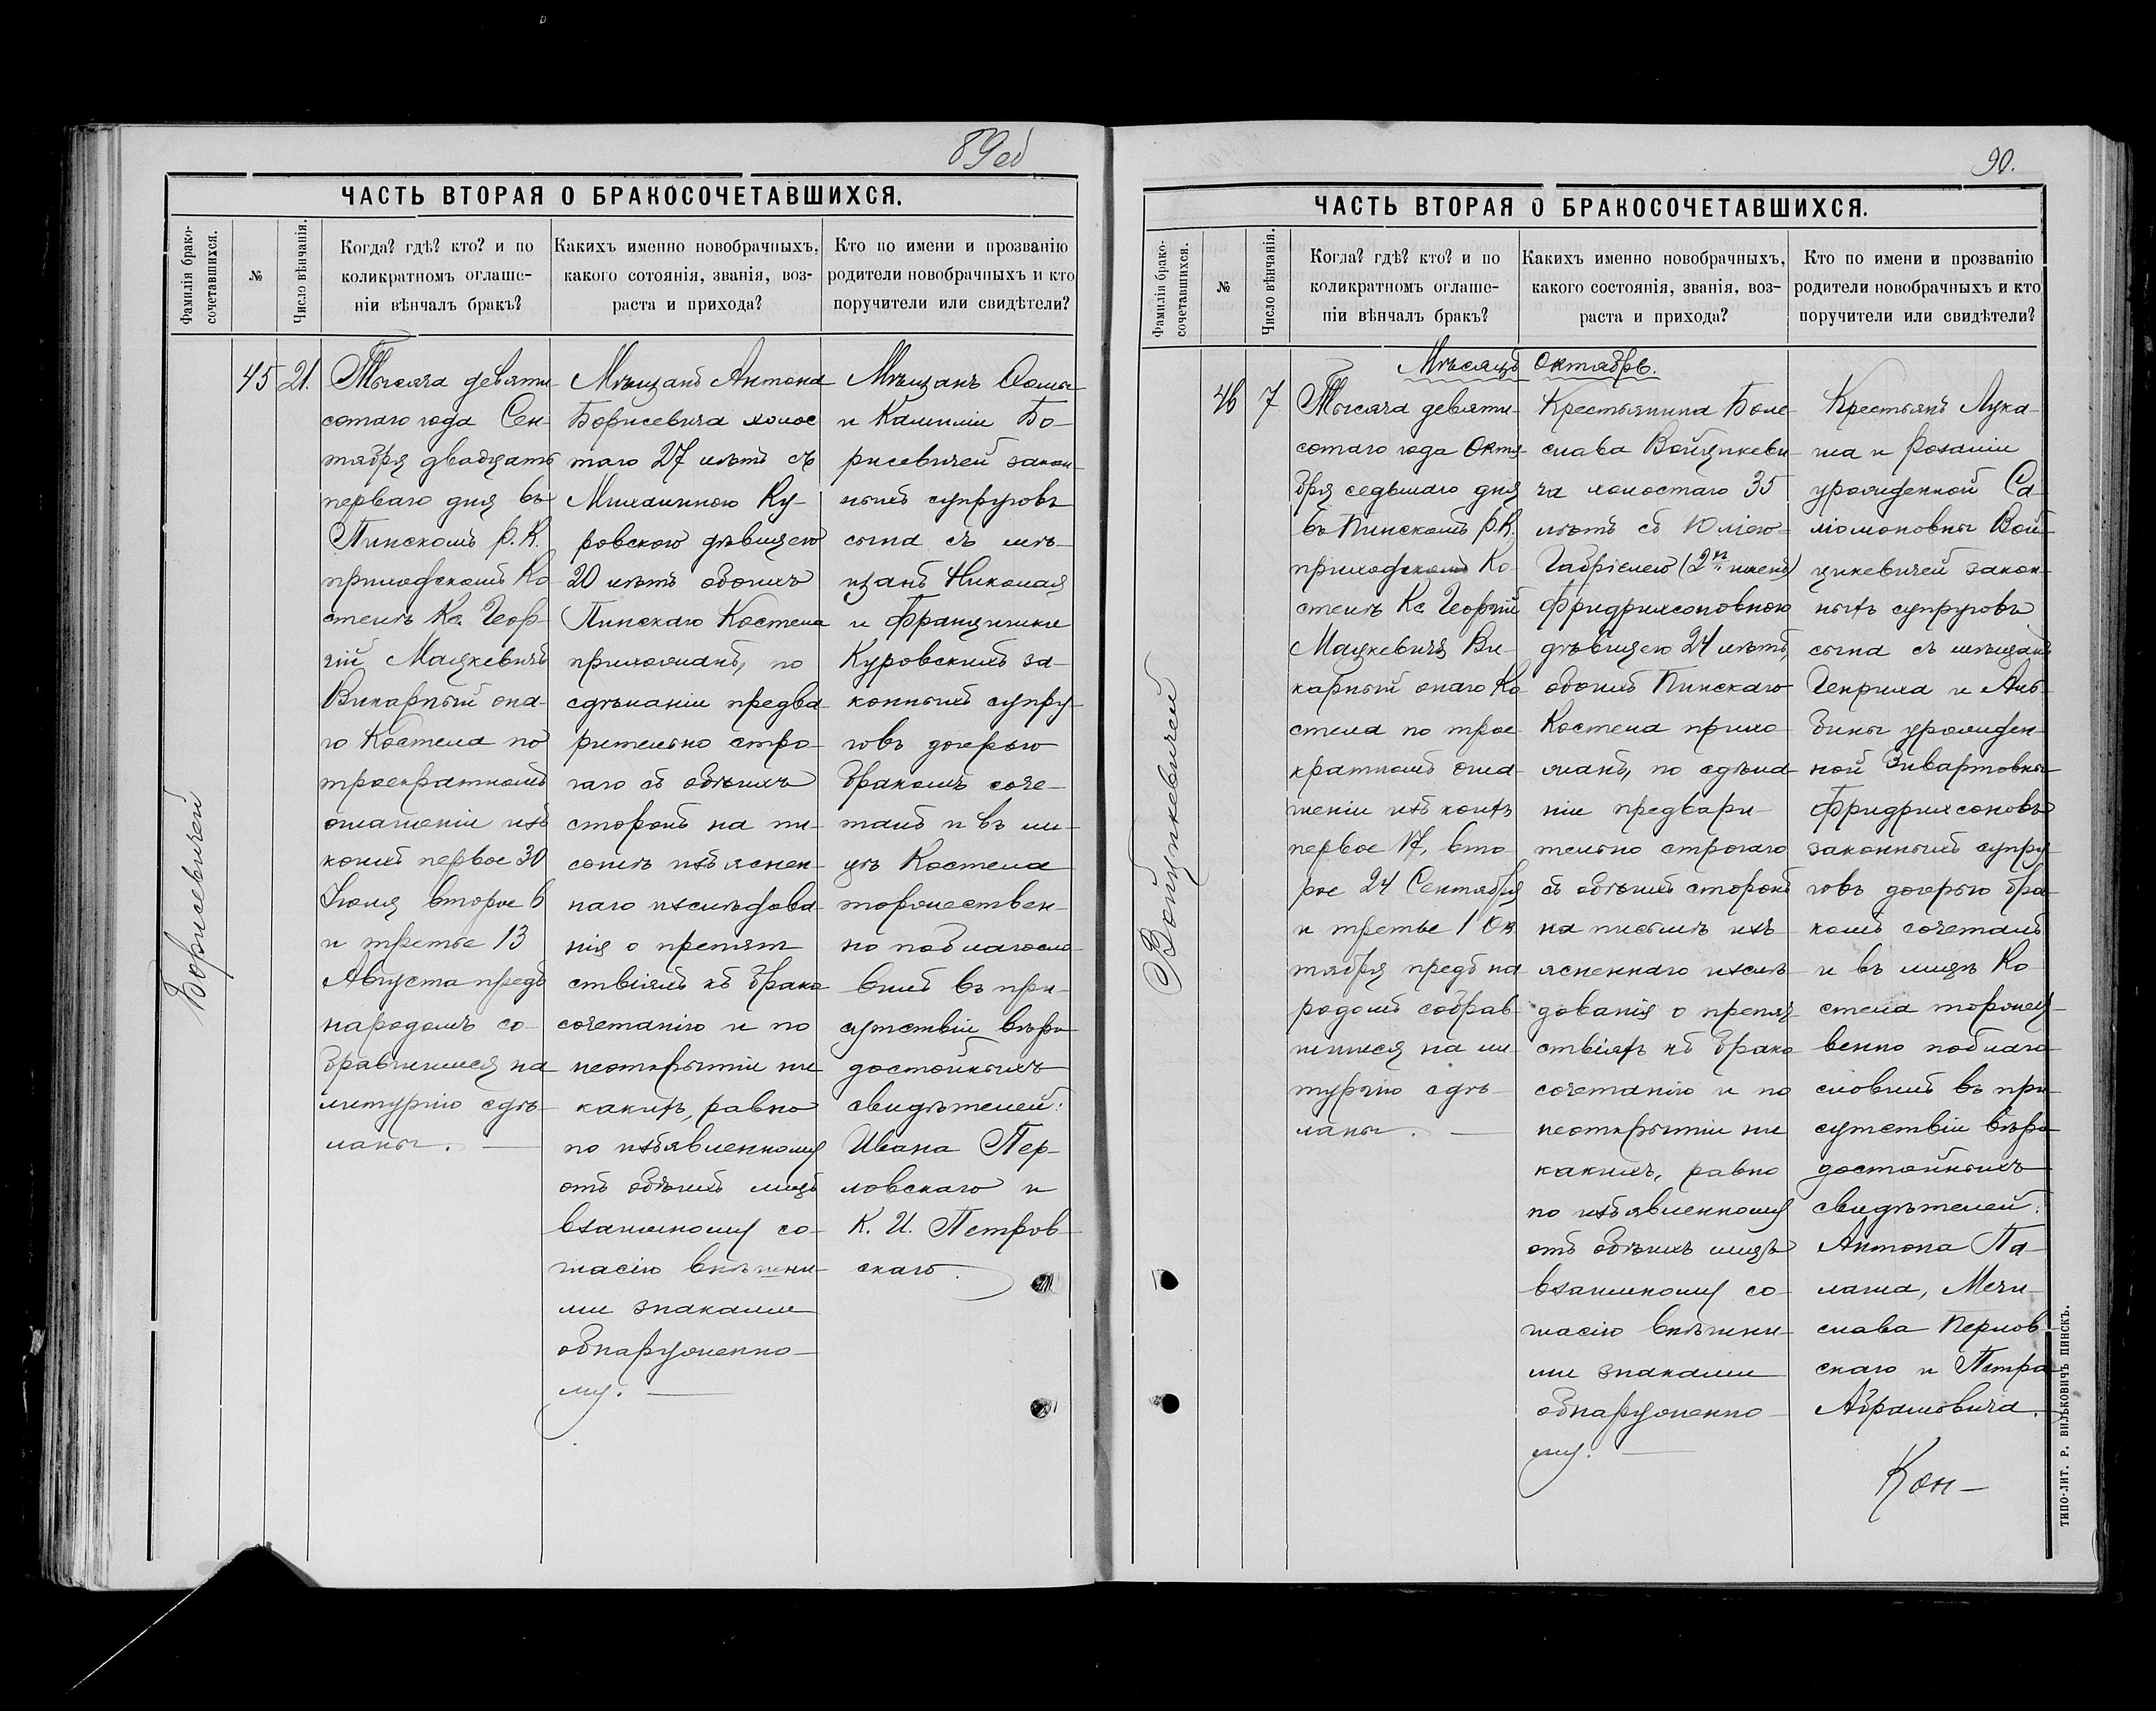 89об
ЧАСТЬ ВТОРАЯ О БРАКОСОЧЕТАВШИХСЯ.
Фамилія брако-
сочетавшихся.
№
Число вѣнчанія.
Когда? гдѣ? кто? и по
коликратномъ оглаше-
ніи вѣнчалъ бракъ?
Какихъ именно новобрачныхъ,
какого сотоянія, званія, воз-
раста и прихода?
Кто по имени и прозванію
родители новобрачныхъ и кто
поручители или свидѣтели?
Борисевичей
45
21.
Тысяча девяти-
сотаго года Сен-
тября двадцать
перваго дня въ
Пинскомъ Р. К.
приходскомъ Ко
стелѣ Кс. Геор-
гій Мацкевичъ
Викарный она-
го Костела по
троекратномъ
оглашеніи изъ
коихъ первое 30
Іюля второе 6
и третье 13
Августа предъ
народомъ со-
бравшимся на
литургію сдѣ-
ланы.
Мѣщанъ Антона
Борисевича холос
таго 27 лѣтъ съ
Михалиною Ку-
ровскою дѣвицею
20 лѣтъ обоихъ
Пинскаго Костела
прихожанъ, по
сдѣланіи предва-
рительно стро-
гаго съ обѣихъ
сторонъ на пи-
сьмѣ изъяснен-
наго изслѣдова-
нія о препят
ствіяхъ къ брако
сочетанію и по
неоткрытіи ни
какихъ, равно
по изъявленному
отъ обѣихъ лицъ
взаимному со-
гласію внѣшни-
ми знаками
обнаруженно-
му.
Мѣщанъ Ѳомы
и Камиліи Бо-
рисевичей закон-
ныхъ супруговъ
сына съ мѣ-
щанъ Николая
и Францишки
Куровскихъ за-
конныхъ супру-
говъ дочерью
бракомъ соче-
талъ и въ ли-
цѣ Костела
торжествен-
но поблагосло-
вилъ въ при-
сутствіи вѣро
достойныхъ
свидѣтелей:
Ивана Пер-
ловскаго и
К. И. Петров-
скаго.
90.
ЧАСТЬ ВТОРАЯ О БРАКОСОЧЕТАВШИХСЯ.
Фамилія брако-
сочетавшихся.
№
Число вѣнчанія.
Когла? гдѣ? кто? и по
коликратномъ оглаше-
ніи вѣнчалъ бракъ?
Какихъ именно новобрачныхъ,
какого состоянія, званія, воз-
раста и прихода?
Кто по имени и прозванію
родители новобрачныхъ и кто
поручители или свидѣтели?
Войцикевичей
Мѣсяцъ Октябрь.
46
7
Тысяча девяти-
сотаго года Октя-
бря седьмаго дня
въ Пинскомъ Р. К.
приходскомъ Ко-
стелѣ Кс. Георгій
Мацкевичъ Ви-
карный онаго Ко-
стела по трое-
кратномъ огла-
шеніи изъ коихъ
первое 17, вто-
рое 24 Сентября
и третье 1 Ок
тября предъ на
родомъ собрав-
шимся на ли-
тургію сдѣ-
ланы.
Крестьянина Боле-
слава Войцикеви-
ча холостаго 35
лѣтъ съ Юліею
Габріелею (2 именъ)
Фридрихсоновною
дѣвицею 24 лѣтъ,
обоихъ Пинскаго
Костела прихо-
жанъ, по сдѣла-
ніи предвари-
тельно строгаго
съ обѣихъ сторонъ
на письмѣ изъ-
ясненнаго изслѣ-
дованія о препят
ствіяхъ къ брако
сочетанію и по
неоткрытіи ни
какихъ, равно
по изъявленному
отъ обѣихъ лицъ
взаимному со-
гласію внѣшни-
ми знаками
обнаруженно-
му.
Крестьянъ Лука-
ша и Розаліи
урожденной Са-
ліомоновны Вой-
цикевичей закон-
ныхъ супруговъ
сына съ мѣщанъ
Генриха и Аль-
бины урожден-
ной Зивартовны
Фридрихсоновъ
законныхъ супру
говъ дочерью бра-
комъ сочеталъ
и въ лицѣ Ко
стела торжест-
венно поблаго
словилъ въ при
сутствіи вѣро
достойныхъ
свидѣтелей:
Антона Па-
лаша, Мечи-
слава Перлов-
скаго и Петра
Абрамовича.
Кон-
ТИПО-ЛИТ. Р. ВИЛЬКОВИЧЪ ПИНСКЪ.